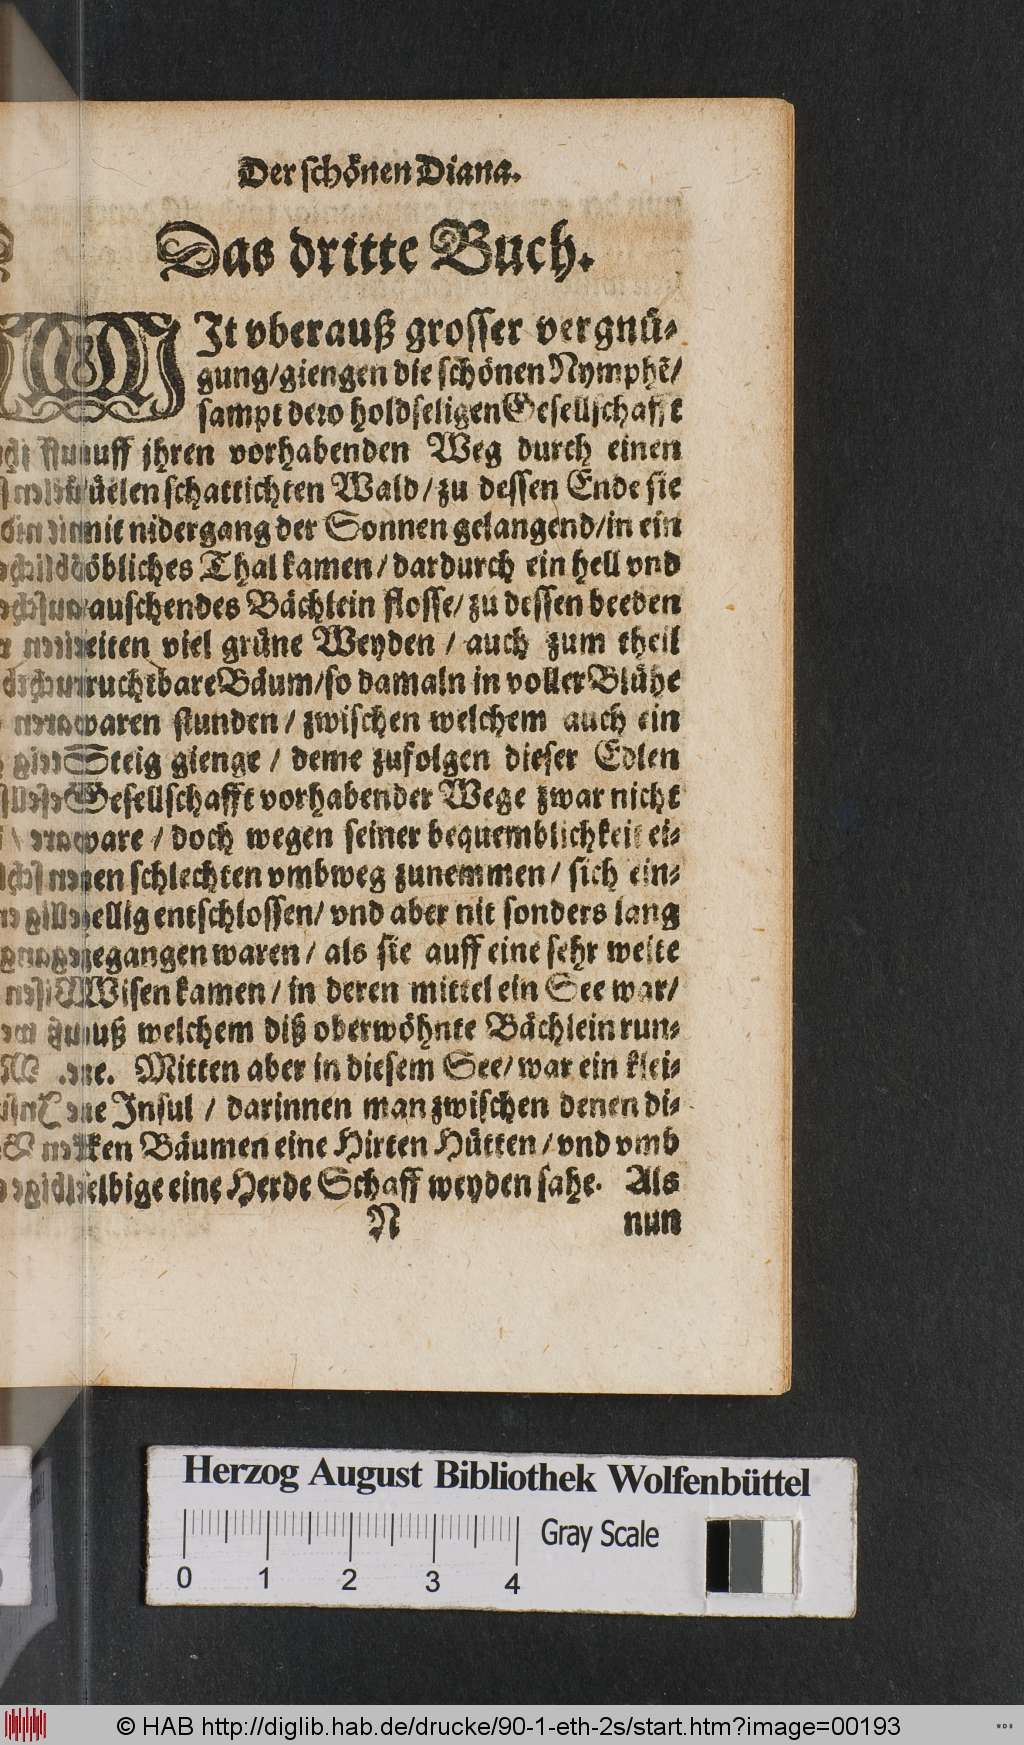 Der schönen Diana.
Das dritte Buch.
MJt vberauß grosser vergnü-
gung/giengen die schönen Nymphẽ/
sampt dero holdseligen Gesellschafft
auff jhren vorhabenden Weg durch einen
küelen schattichten Wald/zu dessen Ende sie
mit nidergang der Sonnen gelangend/in ein
löbliches Thal kamen/dardurch ein hell vnd
rauschendes Bächlein flosse/zu dessen beeden
seiten viel grüne Weyden/auch zum theil
fruchtbare Bäum/so damaln in voller Blühe
waren stunden/zwischen welchem auch ein
Steig gienge/deme zufolgen dieser Edlen
Gesellschafft vorhabender Wege zwar nicht
ware/doch wegen seiner bequemblichkeit ei-
nen schlechten vmbweg zunemmen/sich ein-
hellig entschlossen/vnd aber nit sonders lang
gegangen waren/als sie auff eine sehr weite
Wisen kamen/in deren mittel ein See war/
auß welchem diß oberwöhnte Bächlein run-
ne. Mitten aber in diesem See/war ein klei-
ne Jnsul/darinnen man zwischen denen di-
cken Bäumen eine Hirten Hütten/vnd vmb
selbige eine Herde Schaff weyden sahe. Als
N nun
Herzog August Bibliothek Wolfenbüttel
0 1 2 3 4 Gray Scale
© HAB http://diglib.hab.de/drucke/90-1-eth-2s/start.htm?image=00193